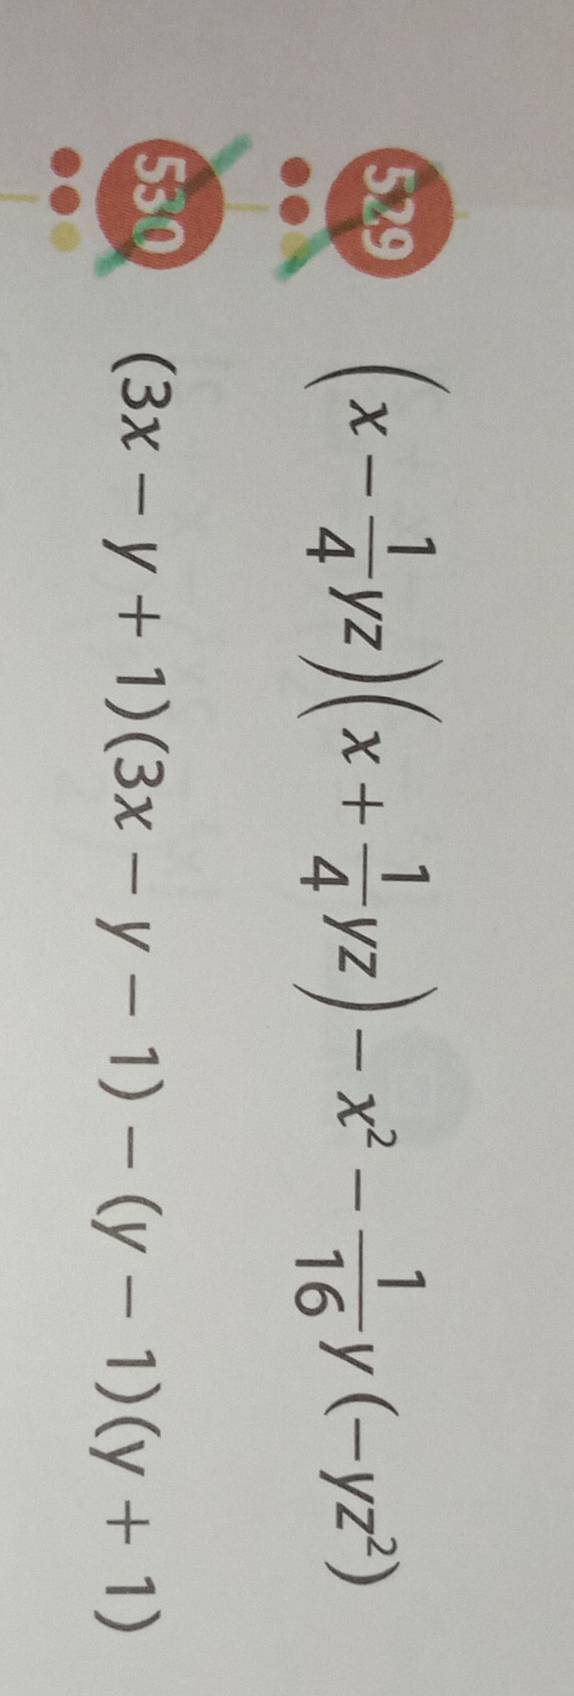 529 (x − 1/4 yz)(x + 1/4 yz) − x² − 1/16 y(−yz²)
530 (3x − y + 1)(3x − y − 1) − (y − 1)(y + 1)